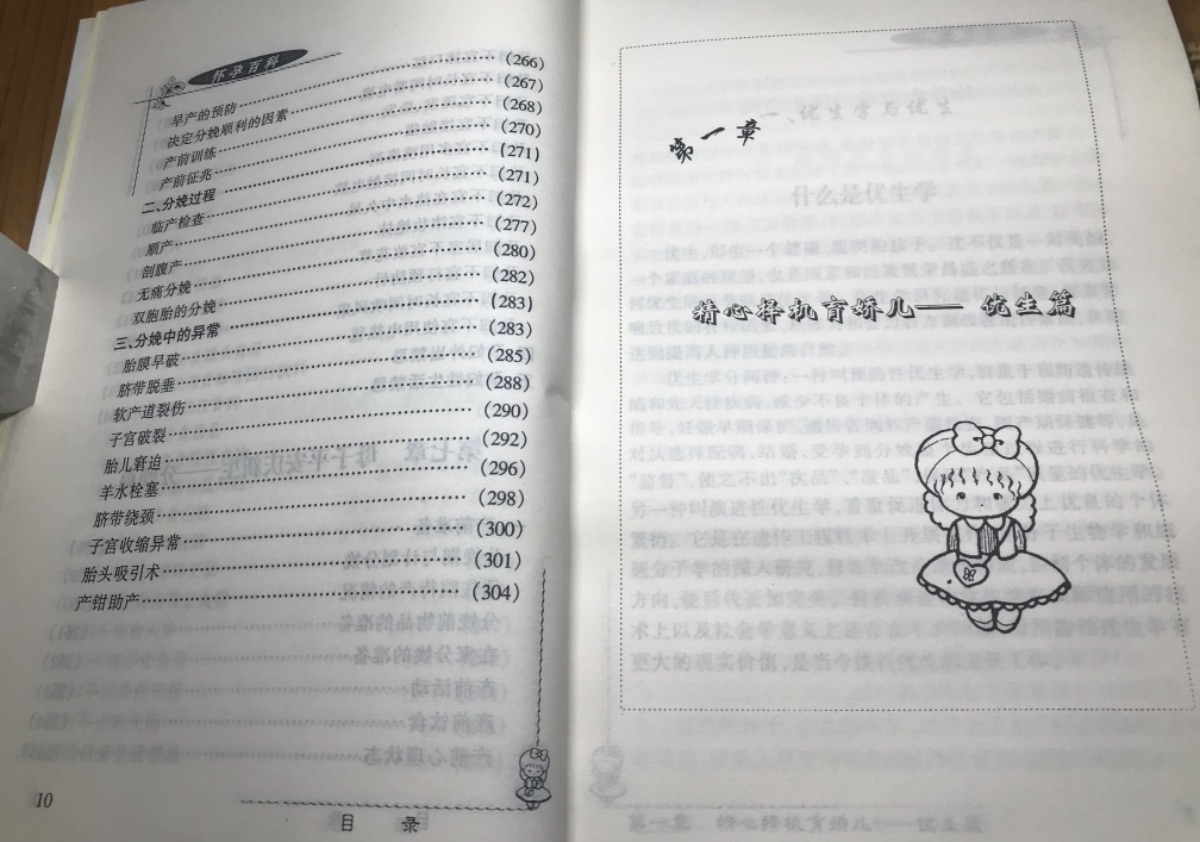 怀孕百科
早产的预防……(266)
决定分娩顺利的因素……(267)
产前训练……(268)
产前征兆……(270)
二、分娩过程……(271)
临产检查……(271)
顺产……(272)
剖腹产……(277)
无痛分娩……(280)
双胞胎的分娩……(282)
三、分娩中的异常……(283)
胎膜早破……(283)
脐带脱垂……(285)
软产道裂伤……(288)
子宫破裂……(290)
胎儿窘迫……(292)
羊水栓塞……(296)
脐带绕颈……(298)
子宫收缩异常……(300)
胎头吸引术……(301)
产钳助产……(304)
10
目 录
第一章
精心择机育娇儿—— 优生篇